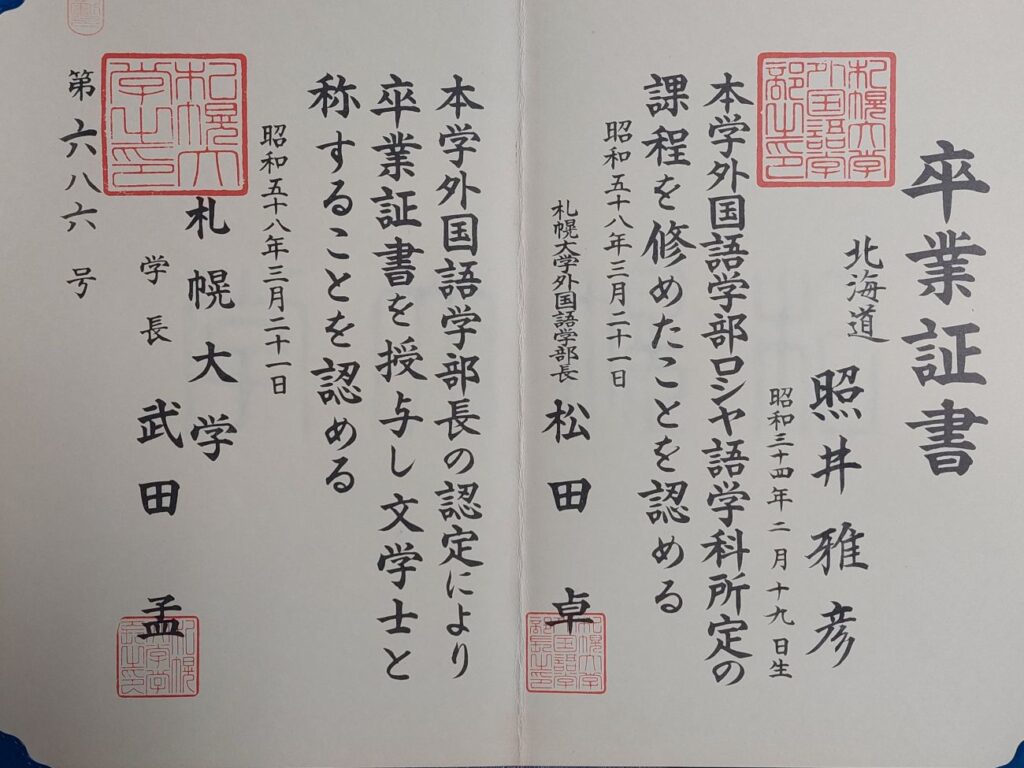 卒業証書
北海道
照井雅彦
昭和三十四年二月十九日生
本学外国語学部ロシヤ語学科所定の
課程を修めたことを認める
昭和五十八年三月二十一日
札幌大学外国語学部長
松田卓
本学外国語学部長の認定により
卒業証書を授与し文学士と
称することを認める
昭和五十八年三月二十一日
札幌大学
学長
武田孟
第六八六号
札幌大学
外国語学
部之印
札幌大
学之印